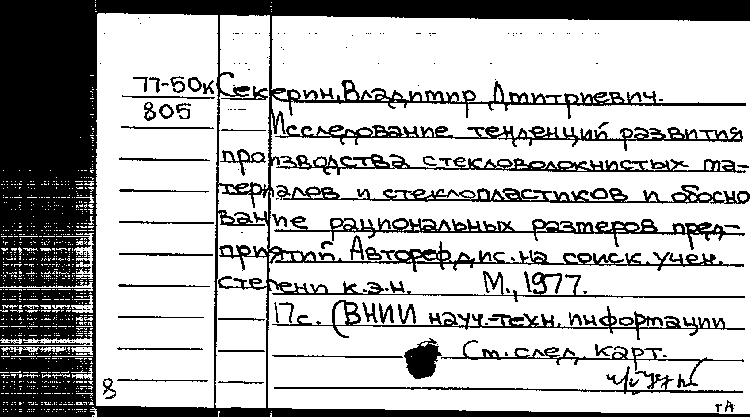 77-50к Секерин, Владимир Дмитриевич.
805
Исследование тенденций развития
производства стекловолокнистых ма-
териалов и стеклопластиков и обосно
вание рациональных размеров пред-
приятий. Автореф. дис. на соиск. учен.
степени к.э.н. М., 1977.
17с. (ВНИИ науч.-техн. информации
См. след. карт.
8